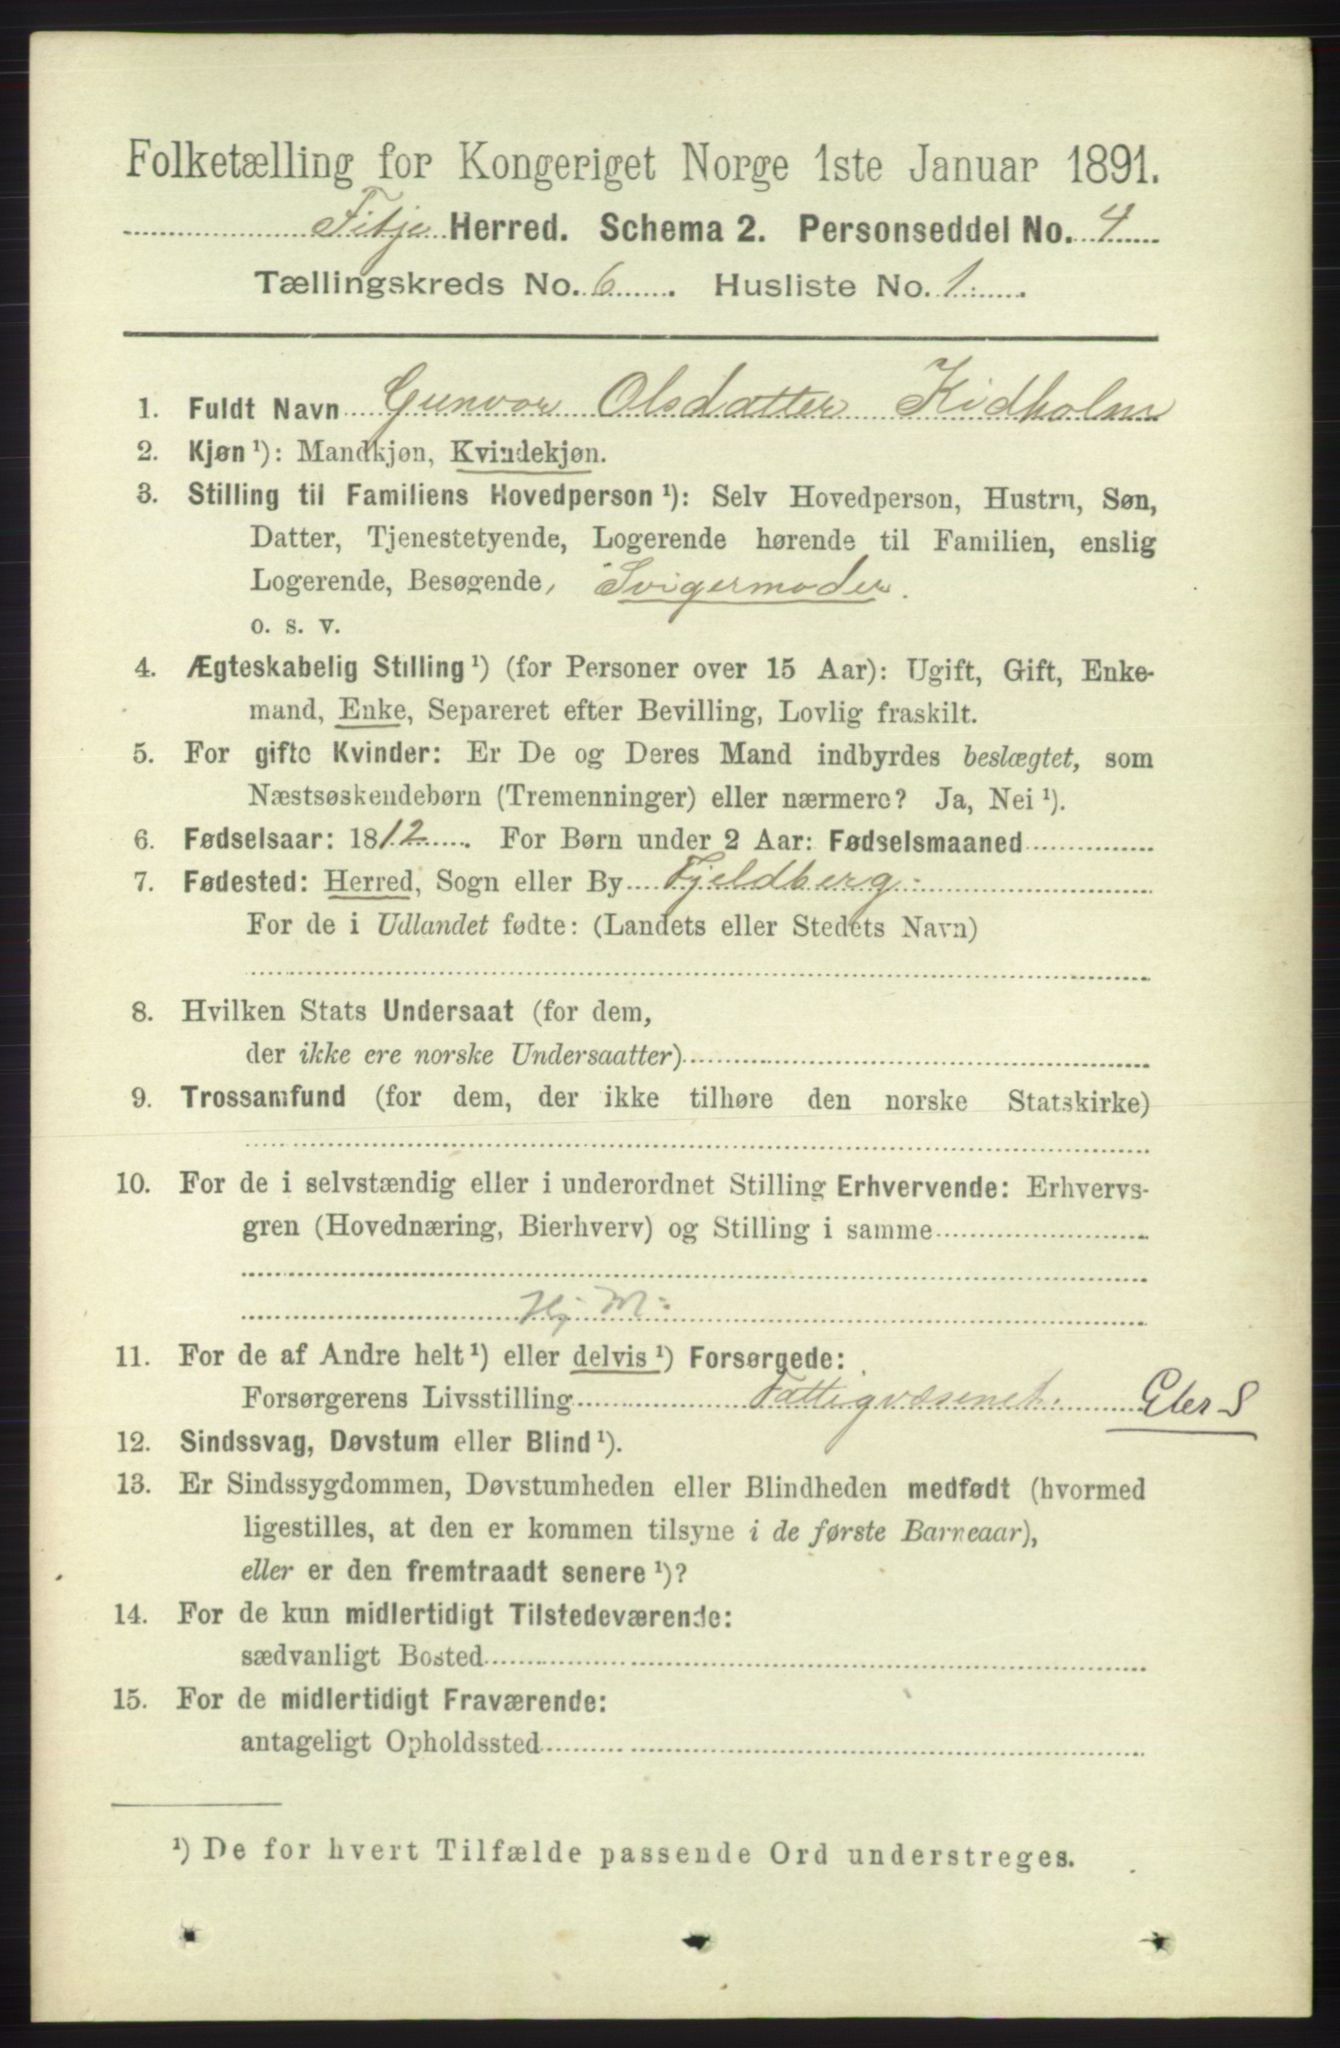 Folketælling for Kongeriget Norge 1ste Januar 1891.
Fitje Herred. Schema 2. Personseddel No. 4
Tællingskreds No. 6. Husliste No. 1.
1. Fuldt Navn Gunvor Olsdatter Kidholm
2. Kjøn¹): Mandkjøn, Kvindekjøn.
3. Stilling til Familiens Hovedperson¹): Selv Hovedperson, Hustru, Søn,
Datter, Tjenestetyende, Logerende hørende til Familien, enslig
Logerende, Besøgende, Svigermoder.
o. s. v.
4. Ægteskabelig Stilling¹) (for Personer over 15 Aar): Ugift, Gift, Enke-
mand, Enke, Separeret efter Bevilling, Lovlig fraskilt.
5. For gifte Kvinder: Er De og Deres Mand indbyrdes beslægtet, som
Næstsøskendebørn (Tremenninger) eller nærmere? Ja, Nei¹).
6. Fødselsaar: 1812. For Børn under 2 Aar: Fødselsmaaned
7. Fødested: Herred, Sogn eller By Fjeldberg
For de i Udlandet fødte: (Landets eller Stedets Navn)
8. Hvilken Stats Undersaat (for dem,
der ikke ere norske Undersaatter)
9. Trossamfund (for dem, der ikke tilhøre den norske Statskirke)
10. For de i selvstændig eller i underordnet Stilling Erhvervende: Erhvervs-
gren (Hovednæring, Bierhverv) og Stilling i samme
Hj M:
11. For de af Andre helt¹) eller delvis¹) Forsørgede:
Forsørgerens Livsstilling Fattigvæsenet.
12. Sindssvag, Døvstum eller Blind¹).
13. Er Sindssygdommen, Døvstumheden eller Blindheden medfødt (hvormed
ligestilles, at den er kommen tilsyne i de første Barneaar),
eller er den fremtraadt senere¹)?
14. For de kun midlertidigt Tilstedeværende:
sædvanligt Bosted
15. For de midlertidigt Fraværende:
antageligt Opholdssted
¹) De for hvert Tilfælde passende Ord understreges.